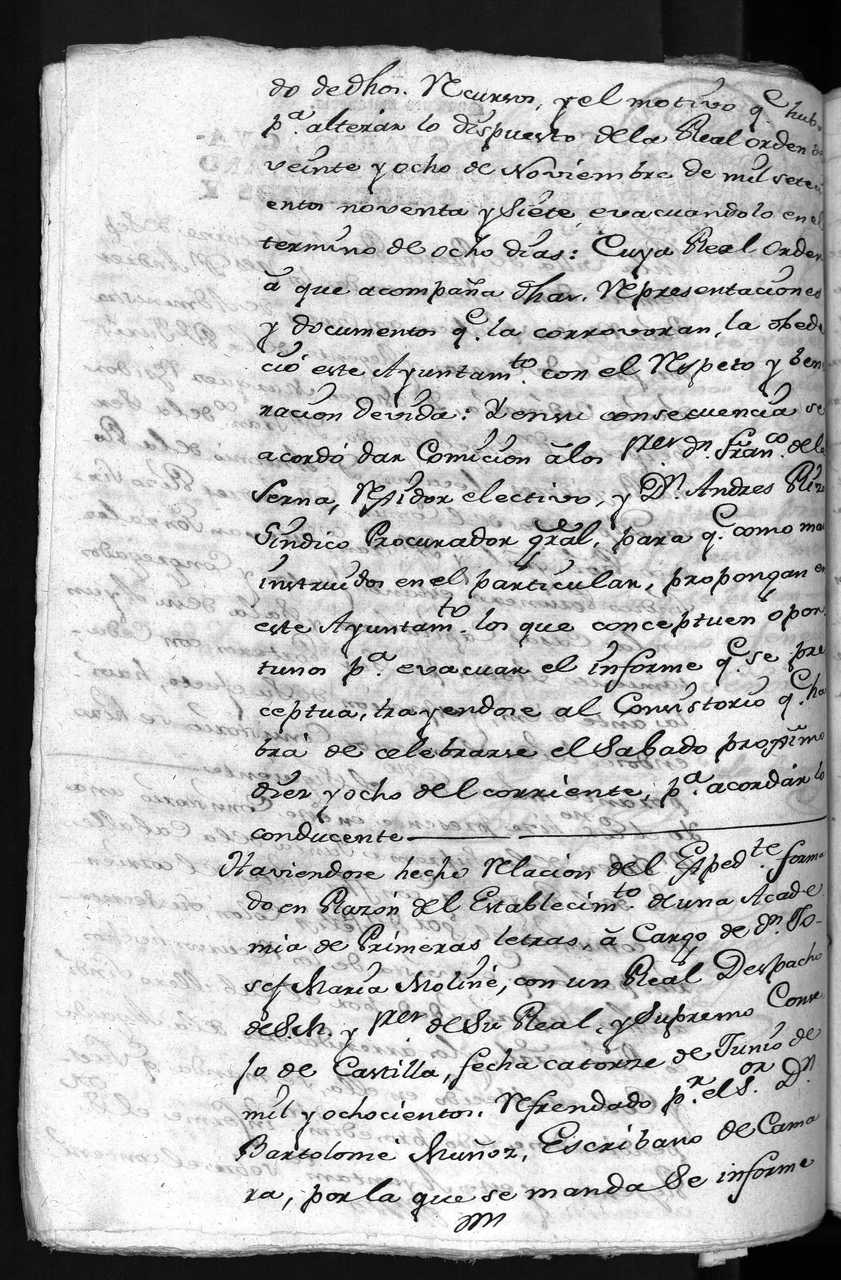 do de dhos. Recursos, y el motivo q.e hubo
p.a alterar lo dispuesto de la Real orden de
veinte y ocho de Noviembre de mil seteci
entos noventa y Siete, evacuandolo en el
termino de ocho dias: Cuya Real Orden
â que acompaña dhas. Representaciones
y documentos q.e la corrovoran, la obede
ció este Ayuntam.to con el Respeto y Ben
racion devida: Y en su consecuencia se
acordó dar Comicion âlos S.res d.n Fran.co de la
Serna, Regidor electivo, y D.n Andres Pirz
Sindico Procurador gral, para q.e como mas
instruidos en el particular, propongan en
este Ayuntam.to los que conceptuen opor
tunos p.a evacuar el informe q.e se pre
ceptua, trayendose al Consistorio q.e ha
brá de celebrarse el Sabado progsimo
diez y ocho del corriente, p.a acordar lo
conducente
Haviendose hecho Relacion del Exped.te forma
do en Razón del Establecim.to de una Acade
mia de Primeras letras, â Cargo de d.n Jo-
sef Maria Moliné, con un Real Despacho
de S.M. y S.res de Su Real, y Supremo Conse
jo de Castilla, fecha catorze de Junio de
mil y ochocientos, Refrendado p.r el S.or D.n
Bartolomé Muñoz, Escribano de Cama
ra, por la que se manda Se informe